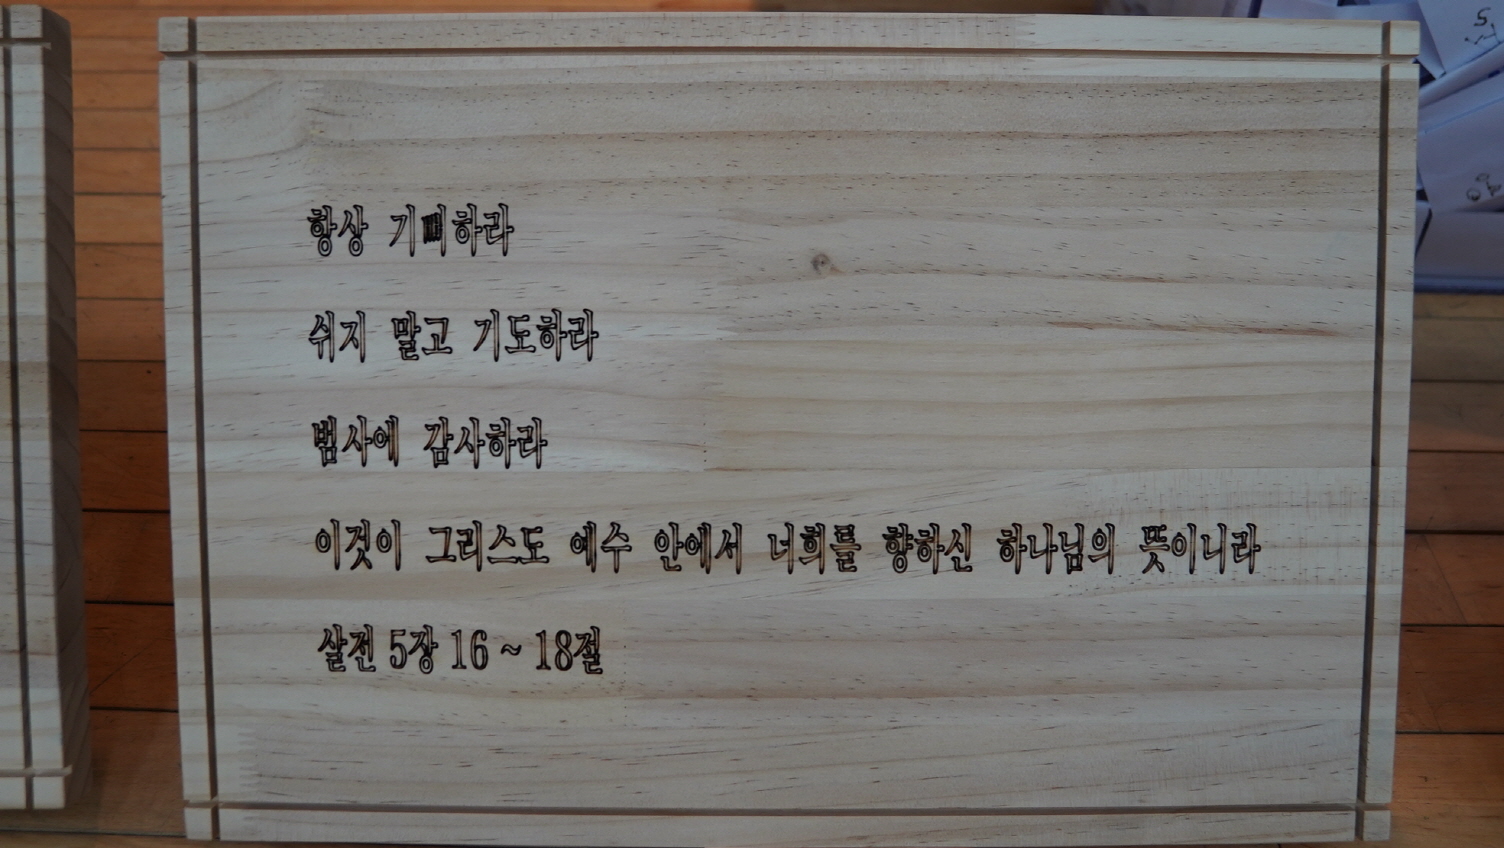 항상 기뻐하라
쉬지 말고 기도하라
범사에 감사하라
이것이 그리스도 예수 안에서 너희를 향하신 하나님의 뜻이니라
살전 5장 16 ~ 18절